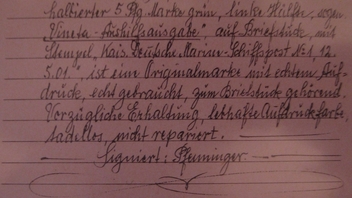 halbierter 5 Pfg. Marke grün, linke Hälfte, sogen.
Vineta-Aushilfsausgabe, auf Briefstück, mit
Stempel, Kais. Deutsche Marine-Schiffspost No 1, 12.
5.01. ist eine Originalmarke mit echtem Auf-
druck, echt gebraucht, zum Briefstück gehörend.
Vorzügliche Erhaltung, lebhafte Aufdruckfarbe,
tadellos, nicht repariert.
Signiert: Pfenninger.